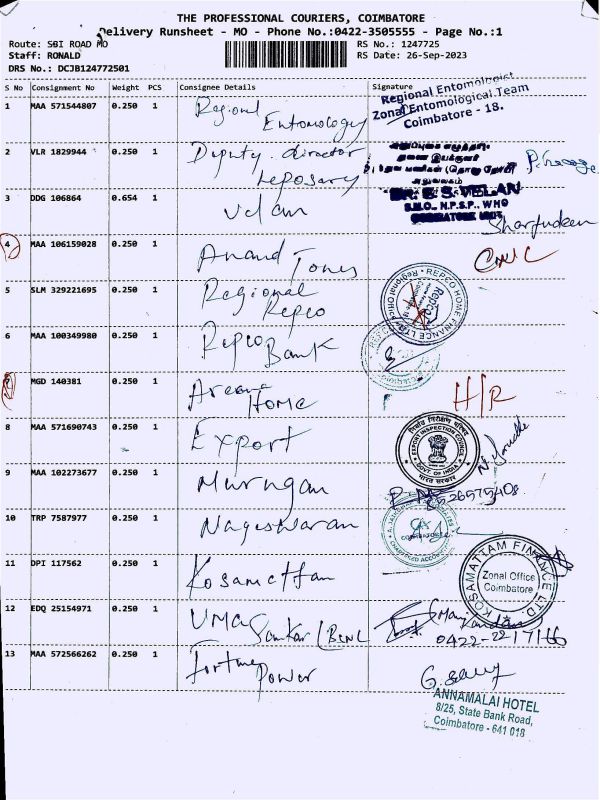 THE PROFESSIONAL COURIERS, COIMBATORE
Delivery Runsheet - MO - Phone No.:0422-3505555 - Page No.:1
Route: SBI ROAD MO
RS No.: 1247725
Staff: RONALD
RS Date: 26-Sep-2023
DRS No.: DCJB124772501
S No Consignment No Weight PCS Consignee Details Signature
1 MAA 571544807 0.250 1 Regional Entomology
Regional Entomologist
Zonal Entomological Team
Coimbatore - 18.
2 VLR 1829944 0.250 1 Deputy director
Leposary
3 DDG 106864 0.654 1 Velan
S.M.O., N.P.S.P., WHO
Sharfudeen
4 MAA 106159028 0.250 1 Anand Tones
CNIC
5 SLM 329221695 0.250 1 Regional Repco
REPCO HOME FINANCE LTD
Regional Office
6 MAA 100349980 0.250 1 Repco Bank
7 MGD 140381 0.250 1 Home
H/R
8 MAA 571690743 0.250 1 Export
EXPORT INSPECTION COUNCIL
GOVT. OF INDIA
9 MAA 102273677 0.250 1 Murugan
10 TRP 7587977 0.250 1 Nageswaran
CHARTERED ACCOUNTANTS
11 DPI 117562 0.250 1 Kosamattam
KOSAMATTAM FINANCE LTD.
Zonal Office
Coimbatore
12 EDQ 25154971 0.250 1 UMA Sankar
13 MAA 572566262 0.250 1 Fortune Power
ANNAMALAI HOTEL
8/25, State Bank Road,
Coimbatore - 641 018